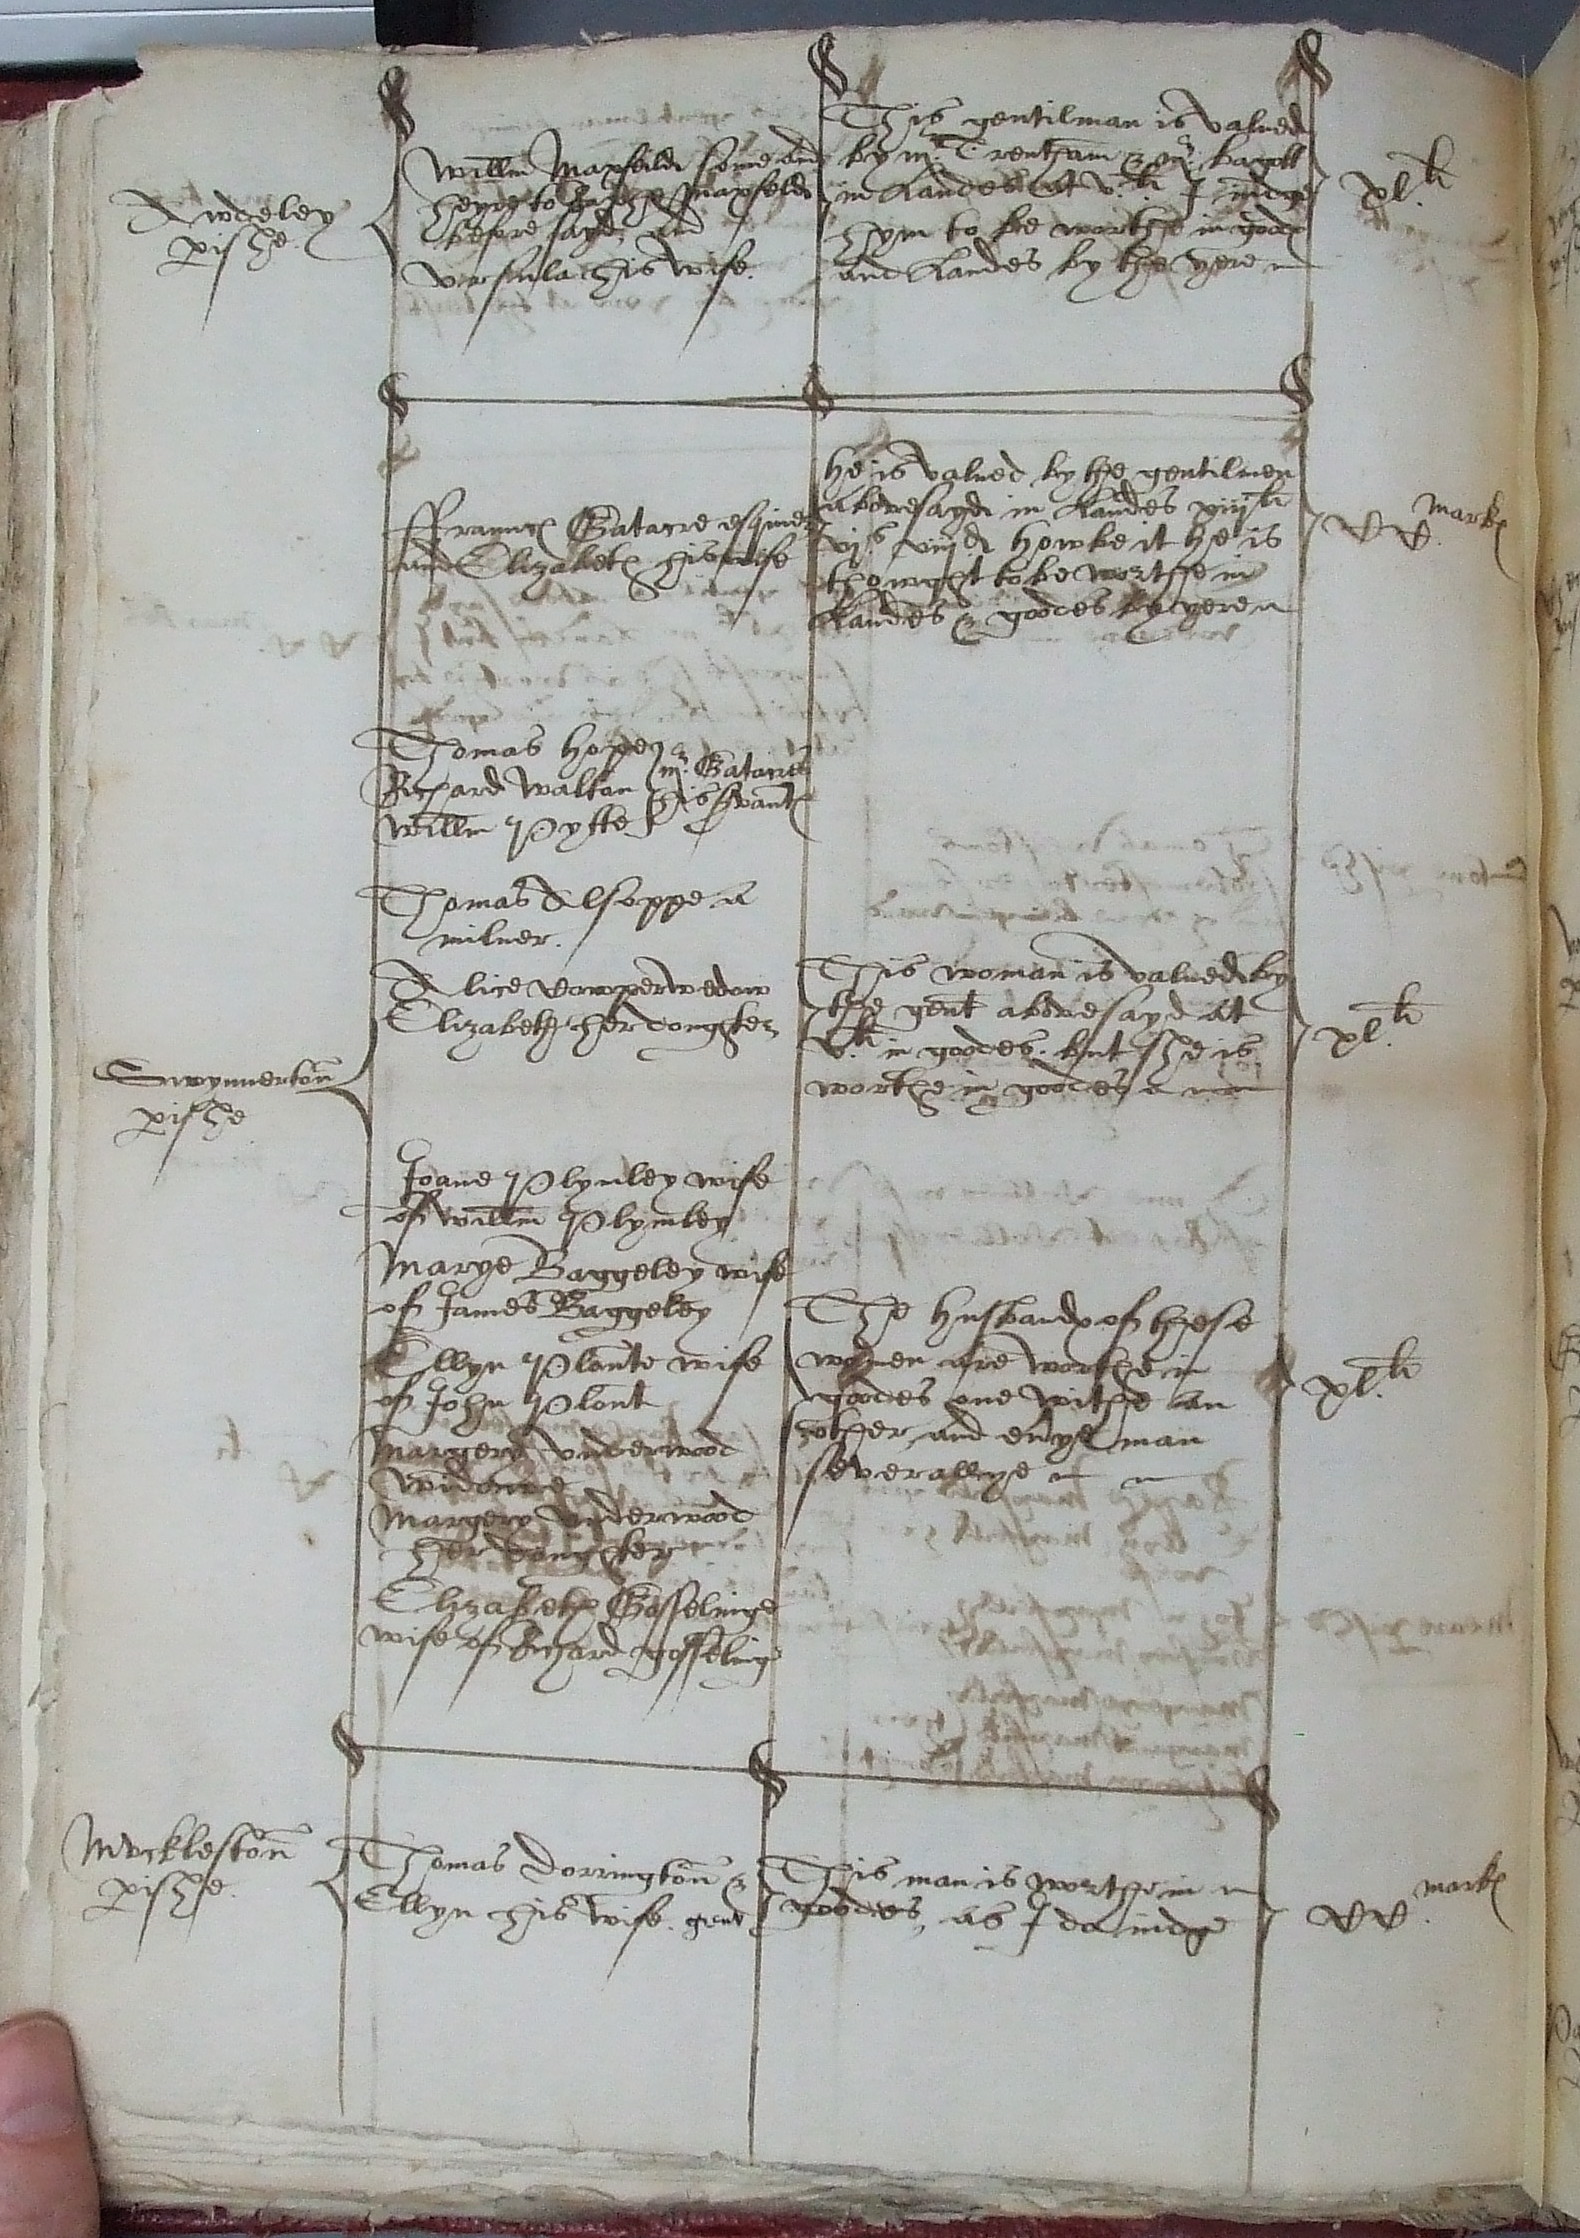 Awdeley
pishe
Willm Maxfeild sonne and
heyre to Raphe Maxfeild
before sayd and
Vrsula his wife.
This gentilman is valued
by mr. Trentham & mr. Bagott
in Landes at v. li I iudge
hym to be worthe in goodes
and Landes by the yere
xl. li
ffraunc Gatacre esquier
and Elizabeth his wife
he is valued by the gentilmen
abovesayd in Landes xiij li
vj s viij d howbeit he is
thowght to be worthe in
Landes & goodes by yere
CC. mark
Thomas hope
Richard Walton
Willm Pytte
mr. Gatacre
his svant
Thomas Alsoppe a
milner.
Swynnerton
pishe
Alice wedow
Elizabeth her doughter
This woman is valued by
the gent abovesayd at
v. li in goodes. but she is
worthe in goodes
xl. li
Joane Plymley wife
of Willm Plymley
Marye Baggeley wife
of James Baggeley
Ellyn Plonte wife
of John Plont
Margery Vnderwood
widowe
Margery Vnderwood
her doughter
Elizabeth Gosselinge
wife of Richard gosseling
The husband of these
women are worthe in
goodes one withe an
other, and every man
severallye
xl. li
Muckleston
pishe.
Thomas Dorrington &
Ellyn his wife. gent
This man is worthe in
goodes, as I do iudge
CC. mark